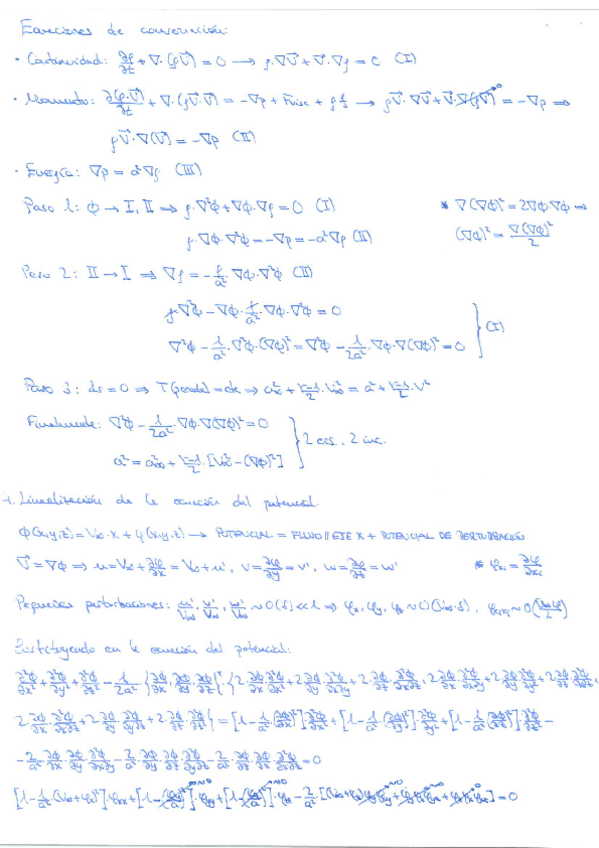 Ecuaciones de conservación:
· Continuidad: ∂ρ/∂t + ∇·(ρV⃗) = 0 → ρ·∇V⃗ + V⃗·∇ρ = 0 (I)
· Momento: ∂(ρ·V⃗)/∂t + ∇·(ρV⃗·V⃗) = -∇p + Fvisc + ρf → ρV⃗·∇V⃗ + V⃗·∇(ρV⃗) = -∇p ⇒
ρV⃗·∇(V⃗) = -∇p (II)
· Energía: ∇p = a²∇ρ (III)
Paso 1: Φ → I, II ⇒ ρ·∇²Φ + ∇Φ·∇ρ = 0 (I) * ∇(∇Φ)² = 2∇Φ·∇Φ ⇒
ρ·∇Φ·∇²Φ = -∇p = -a²∇ρ (II) (∇Φ)² = ∇(∇Φ)²/2
Paso 2: II → I ⇒ ∇ρ = -ρ/a²·∇Φ·∇²Φ (II)
ρ·∇²Φ - ∇Φ·ρ/a²·∇Φ·∇²Φ = 0
∇²Φ - 1/a²·∇²Φ·(∇Φ)² = ∇²Φ - 1/2a²·∇Φ·∇(∇Φ)² = 0 } (I)
Paso 3: ds = 0 ⇒ T = cte ⇒ a∞² + γ-1/2·V∞² = a² + γ-1/2·V²
Finalmente: ∇²Φ - 1/2a²·∇Φ·∇(∇Φ)² = 0
a² = a∞² + γ-1/2·[V∞² - (∇Φ)²] } 2 ecs., 2 inc.
Linealización de la ecuación del potencial.
Φ(x,y,z) = V∞·x + φ(x,y,z) → POTENCIAL = FLUJO // EJE X + POTENCIAL DE PERTURBACIÓN
V⃗ = ∇Φ ⇒ u = V∞ + ∂φ/∂x = V∞ + u', v = ∂φ/∂y = v', w = ∂φ/∂z = w' * φxi = ∂φ/∂xi
Pequeñas perturbaciones: u'/V∞, v'/V∞, w'/V∞ ~ O(δ) << 1 ⇒ φx, φy, φz ~ O(V∞·δ),
Sustituyendo en la ecuación del potencial:
∂²Φ/∂x² + ∂²Φ/∂y² + ∂²Φ/∂z² - 1/2a²·{∂Φ/∂x, ∂Φ/∂y, ∂Φ/∂z}·{2·∂Φ/∂x·∂²Φ/∂x² + 2·∂Φ/∂y·∂²Φ/∂x∂y + 2·∂Φ/∂z·∂²Φ/∂x∂z, 2·∂Φ/∂x·∂²Φ/∂x∂y + 2·∂Φ/∂y·∂²Φ/∂y² + 2·∂Φ/∂z·∂²Φ/∂y∂z,
2·∂Φ/∂x·∂²Φ/∂x∂z + 2·∂Φ/∂y·∂²Φ/∂y∂z + 2·∂Φ/∂z·∂²Φ/∂z²} = [1 - 1/a²·(∂Φ/∂x)²]·∂²Φ/∂x² + [1 - 1/a²·(∂Φ/∂y)²]·∂²Φ/∂y² + [1 - 1/a²·(∂Φ/∂z)²]·∂²Φ/∂z² -
- 2/a²·∂Φ/∂x·∂Φ/∂y·∂²Φ/∂x∂y - 2/a²·∂Φ/∂y·∂Φ/∂z·∂²Φ/∂y∂z - 2/a²·∂Φ/∂x·∂Φ/∂z·∂²Φ/∂x∂z = 0
[1 - 1/a²·(V∞ + φx)²]·φxx + [1 - (φy/a)²]·φyy + [1 - (φz/a)²]·φzz - 2/a²·[(V∞ + φx)φy = 0